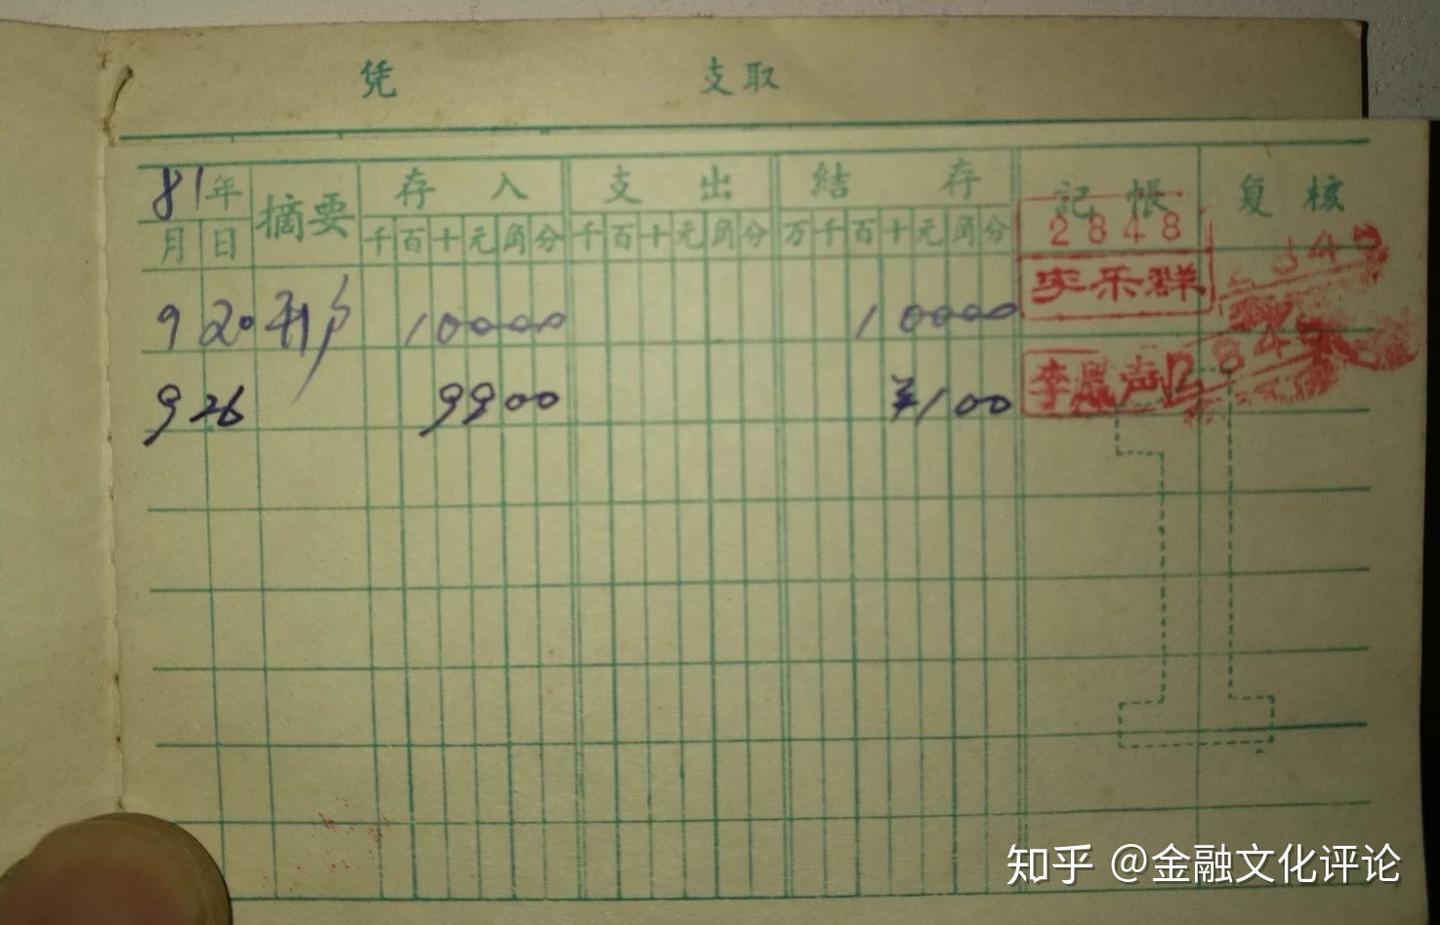 凭 支取
81年 摘要 存入 支出 结存 记帐 复核
月 日 千 百 十 元 角 分 千 百 十 元 角 分 万 千 百 十 元 角 分
2848
李乐群
9 20 开户 10000 10000
9 26 9900 ¥100
李 声
知乎 @金融文化评论